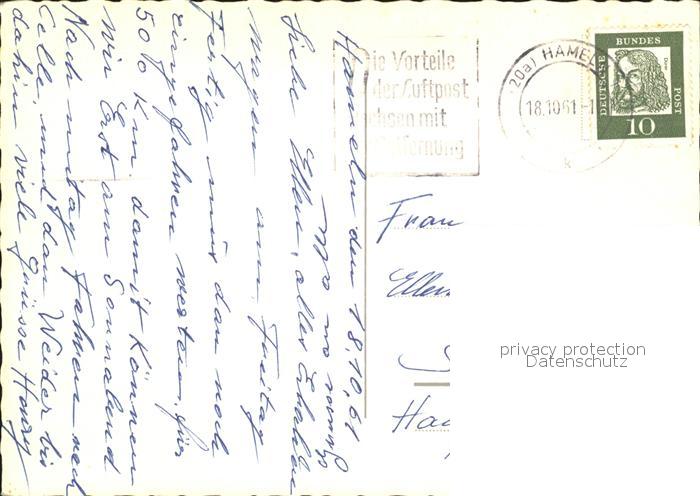 Hameln den 18.10.61
Liebe Ellen, alles Erhalten
wagen am Freitag
Fertig, mus dan noch
eingefahren werden, für
500 Km damit Können
wir Erst am Sonnabend
Nach mitag Fahren nach
Celle, und dan Weider bis
dahin viele Grüsse Henry
Die Vorteile
der Luftpost
wachsen mit
der Entfernung
(20a) HAMELN
18.10.61-1
k
DEUTSCHE
BUNDES
POST
10
Frau
Ellen
Ha
privacy protection
Datenschutz